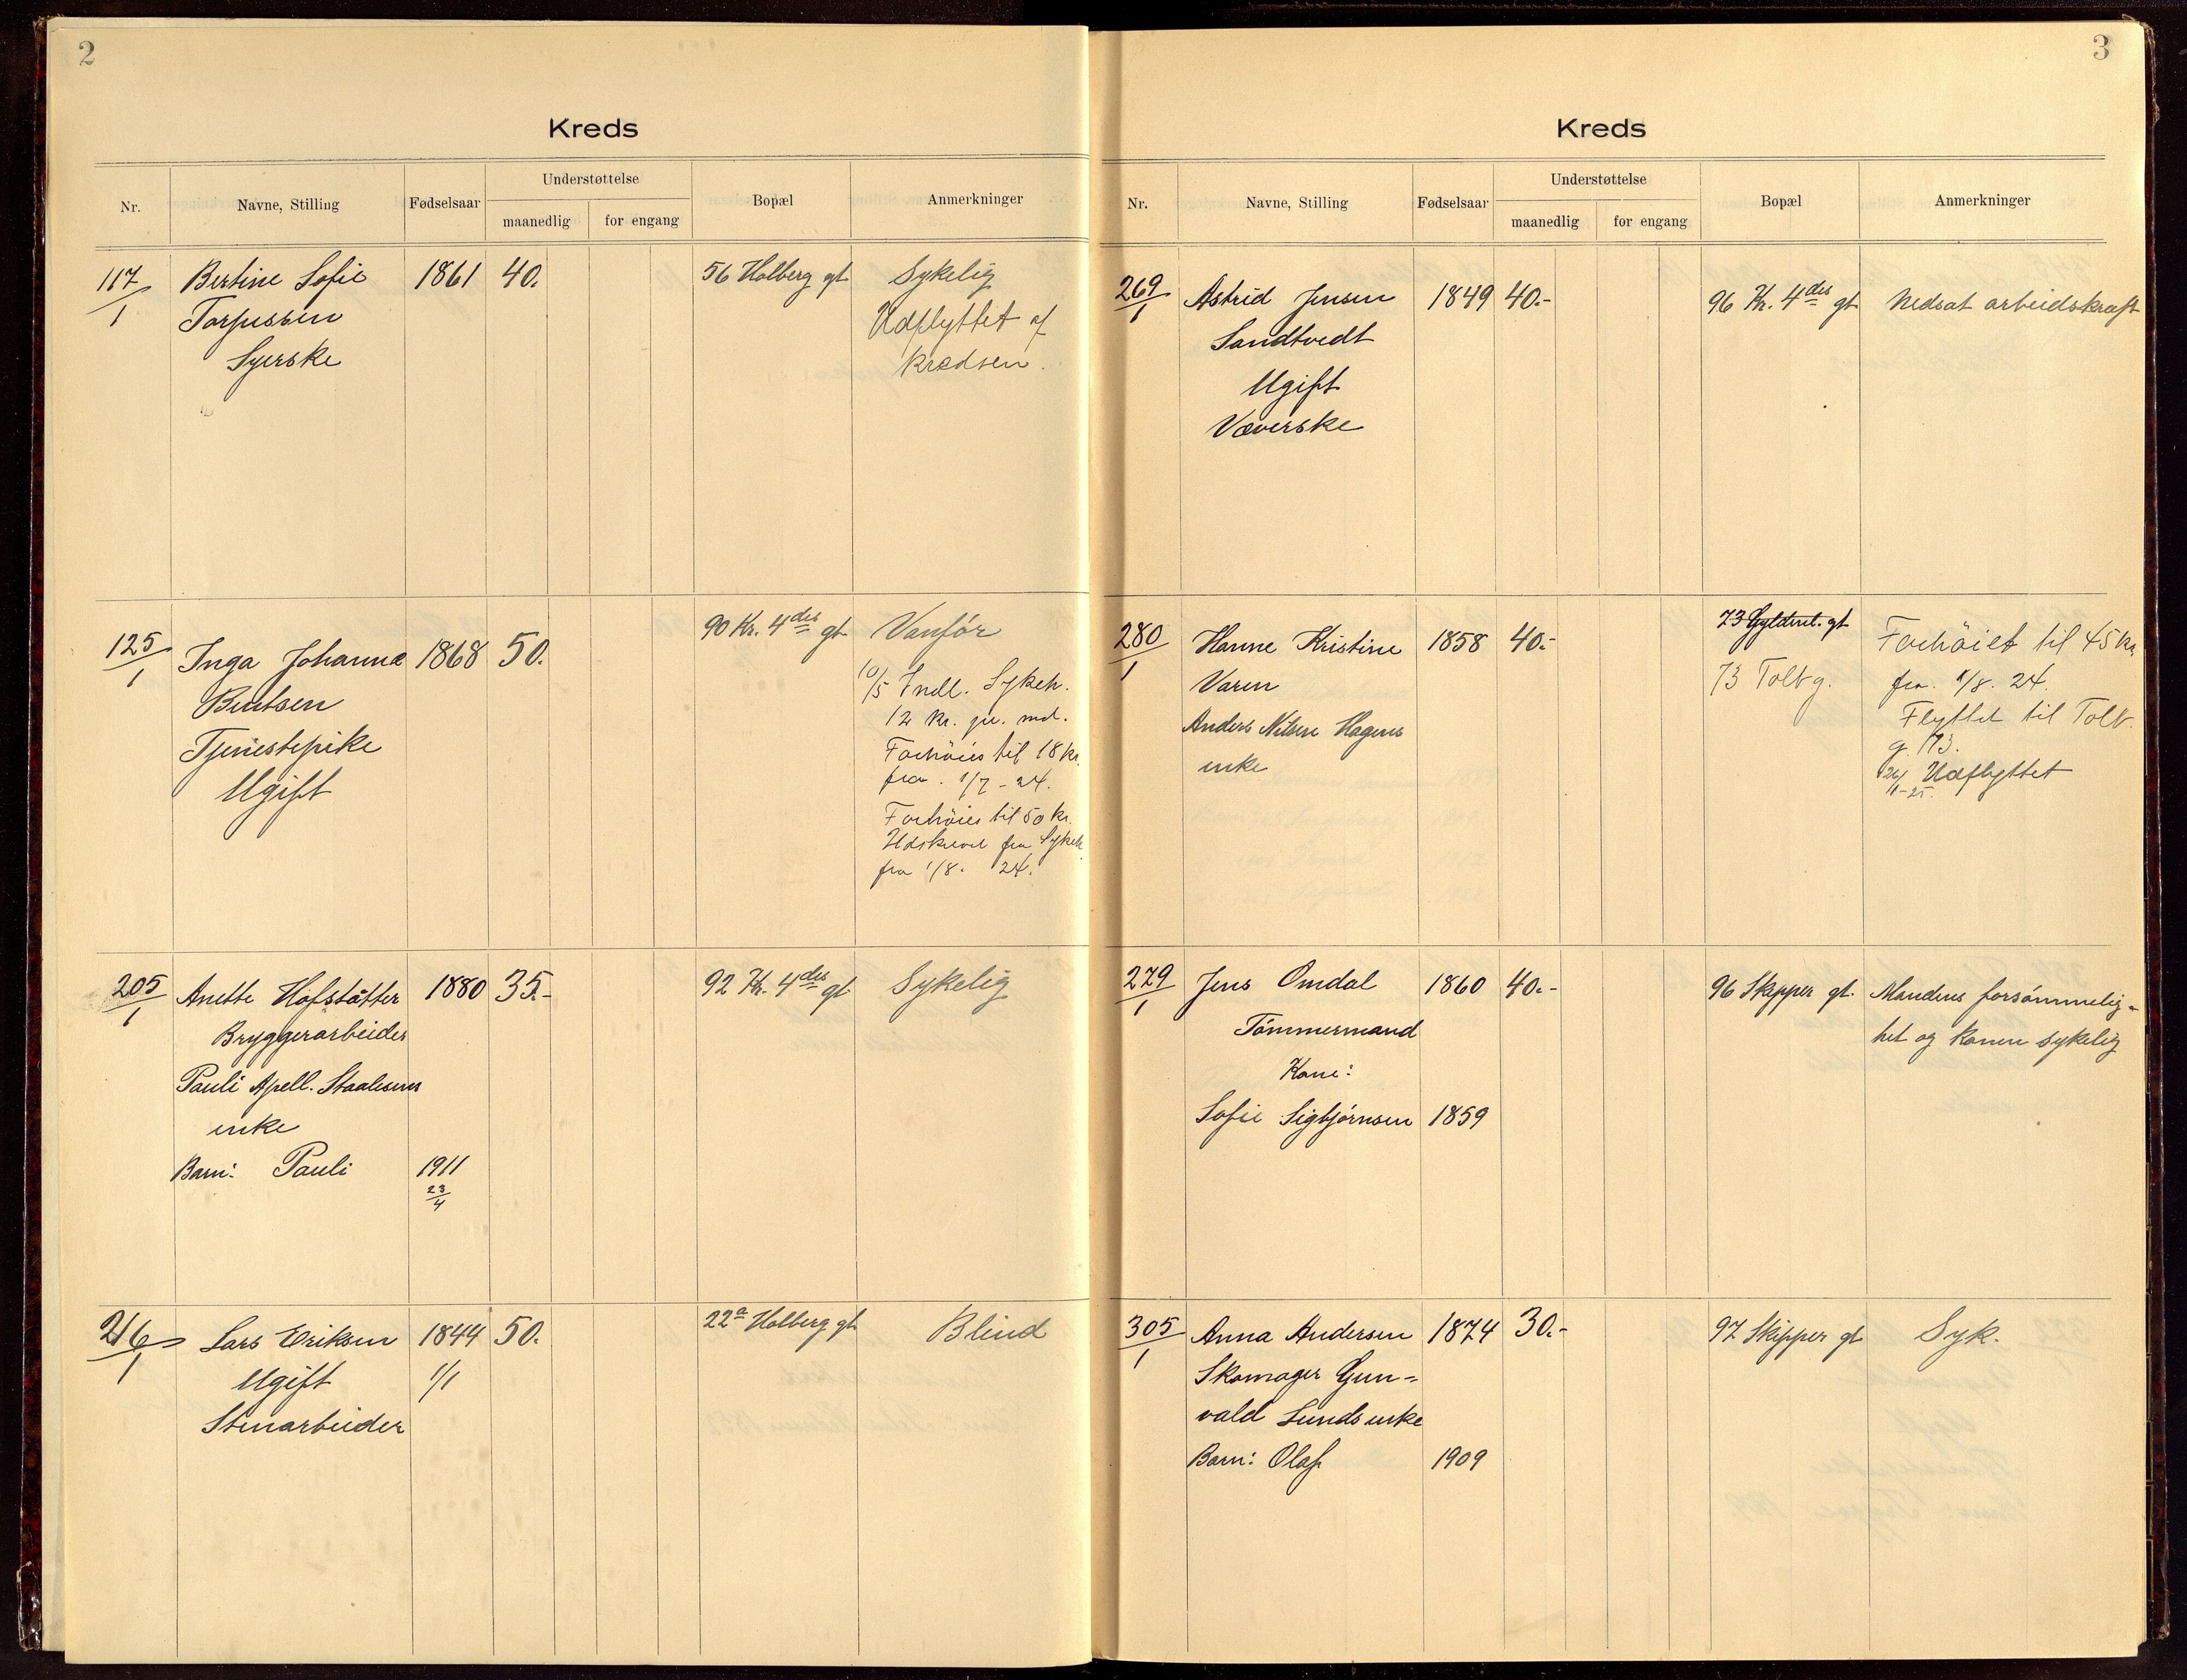 2
Kreds
Nr. Navne, Stilling Fødselsaar Understøttelse Bopæl Anmerkninger
maanedlig for engang
117/1 Bertine Sofie 1861 40. 56 Holberg gt Sykelig
Torjussen Udflyttet af
Syerske kredsen.
125/1 Inga Johanna 1868 50. 90 Kr. 4des gt Vanför
Bentsen 10/5 Indl. Sykeh.
Tjenestepike 12 kr. pr. md.
Ugift Forhöies til 18 kr.
fra. 1/7 - 24.
Forhöies til 50 kr.
Udskrevet fra Sykeh.
fra 1/8. 24.
205/1 Anette Hofstätter 1880 35.- 92 Kr. 4des gt Sykelig
Bryggerarbeider
Pauli Apell. Staalesens
enke
Barn: Pauli 1911
23/4
216/1 Lars Eriksen 1844 50. 22a Holberg gt Blind
Ugift 1/1
Stenarbeider
3
Kreds
Nr. Navne, Stilling Fødselsaar Understøttelse Bopæl Anmerkninger
maanedlig for engang
269/1 Astrid Jensen 1849 40.- 96 Kr. 4des gt Nedsat arbeidskraft
Sandtvedt
Ugift
Væverske
280/1 Hanne Kristine 1858 40.- 73 Gyldenl. gt Forhöiet til 45 kr.
Varen 73 Tolb g. fra. 1/8. 24.
Anders Nilsen Hagens Flyttet til Tolb.
enke g. 73.
26/1-25. Udflyttet
279/1 Jens Omdal 1860 40.- 96 Skipper gt. Mandens forsömmelig-
Tömmermand het og konen sykelig
Kone:
Sofie Sigbjörnsen 1859
305/1 Anna Andersen 1874 30.- 97 Skipper gt Syk.
Skomager Gun-
vald Lunds enke
Barn: Olaf 1909